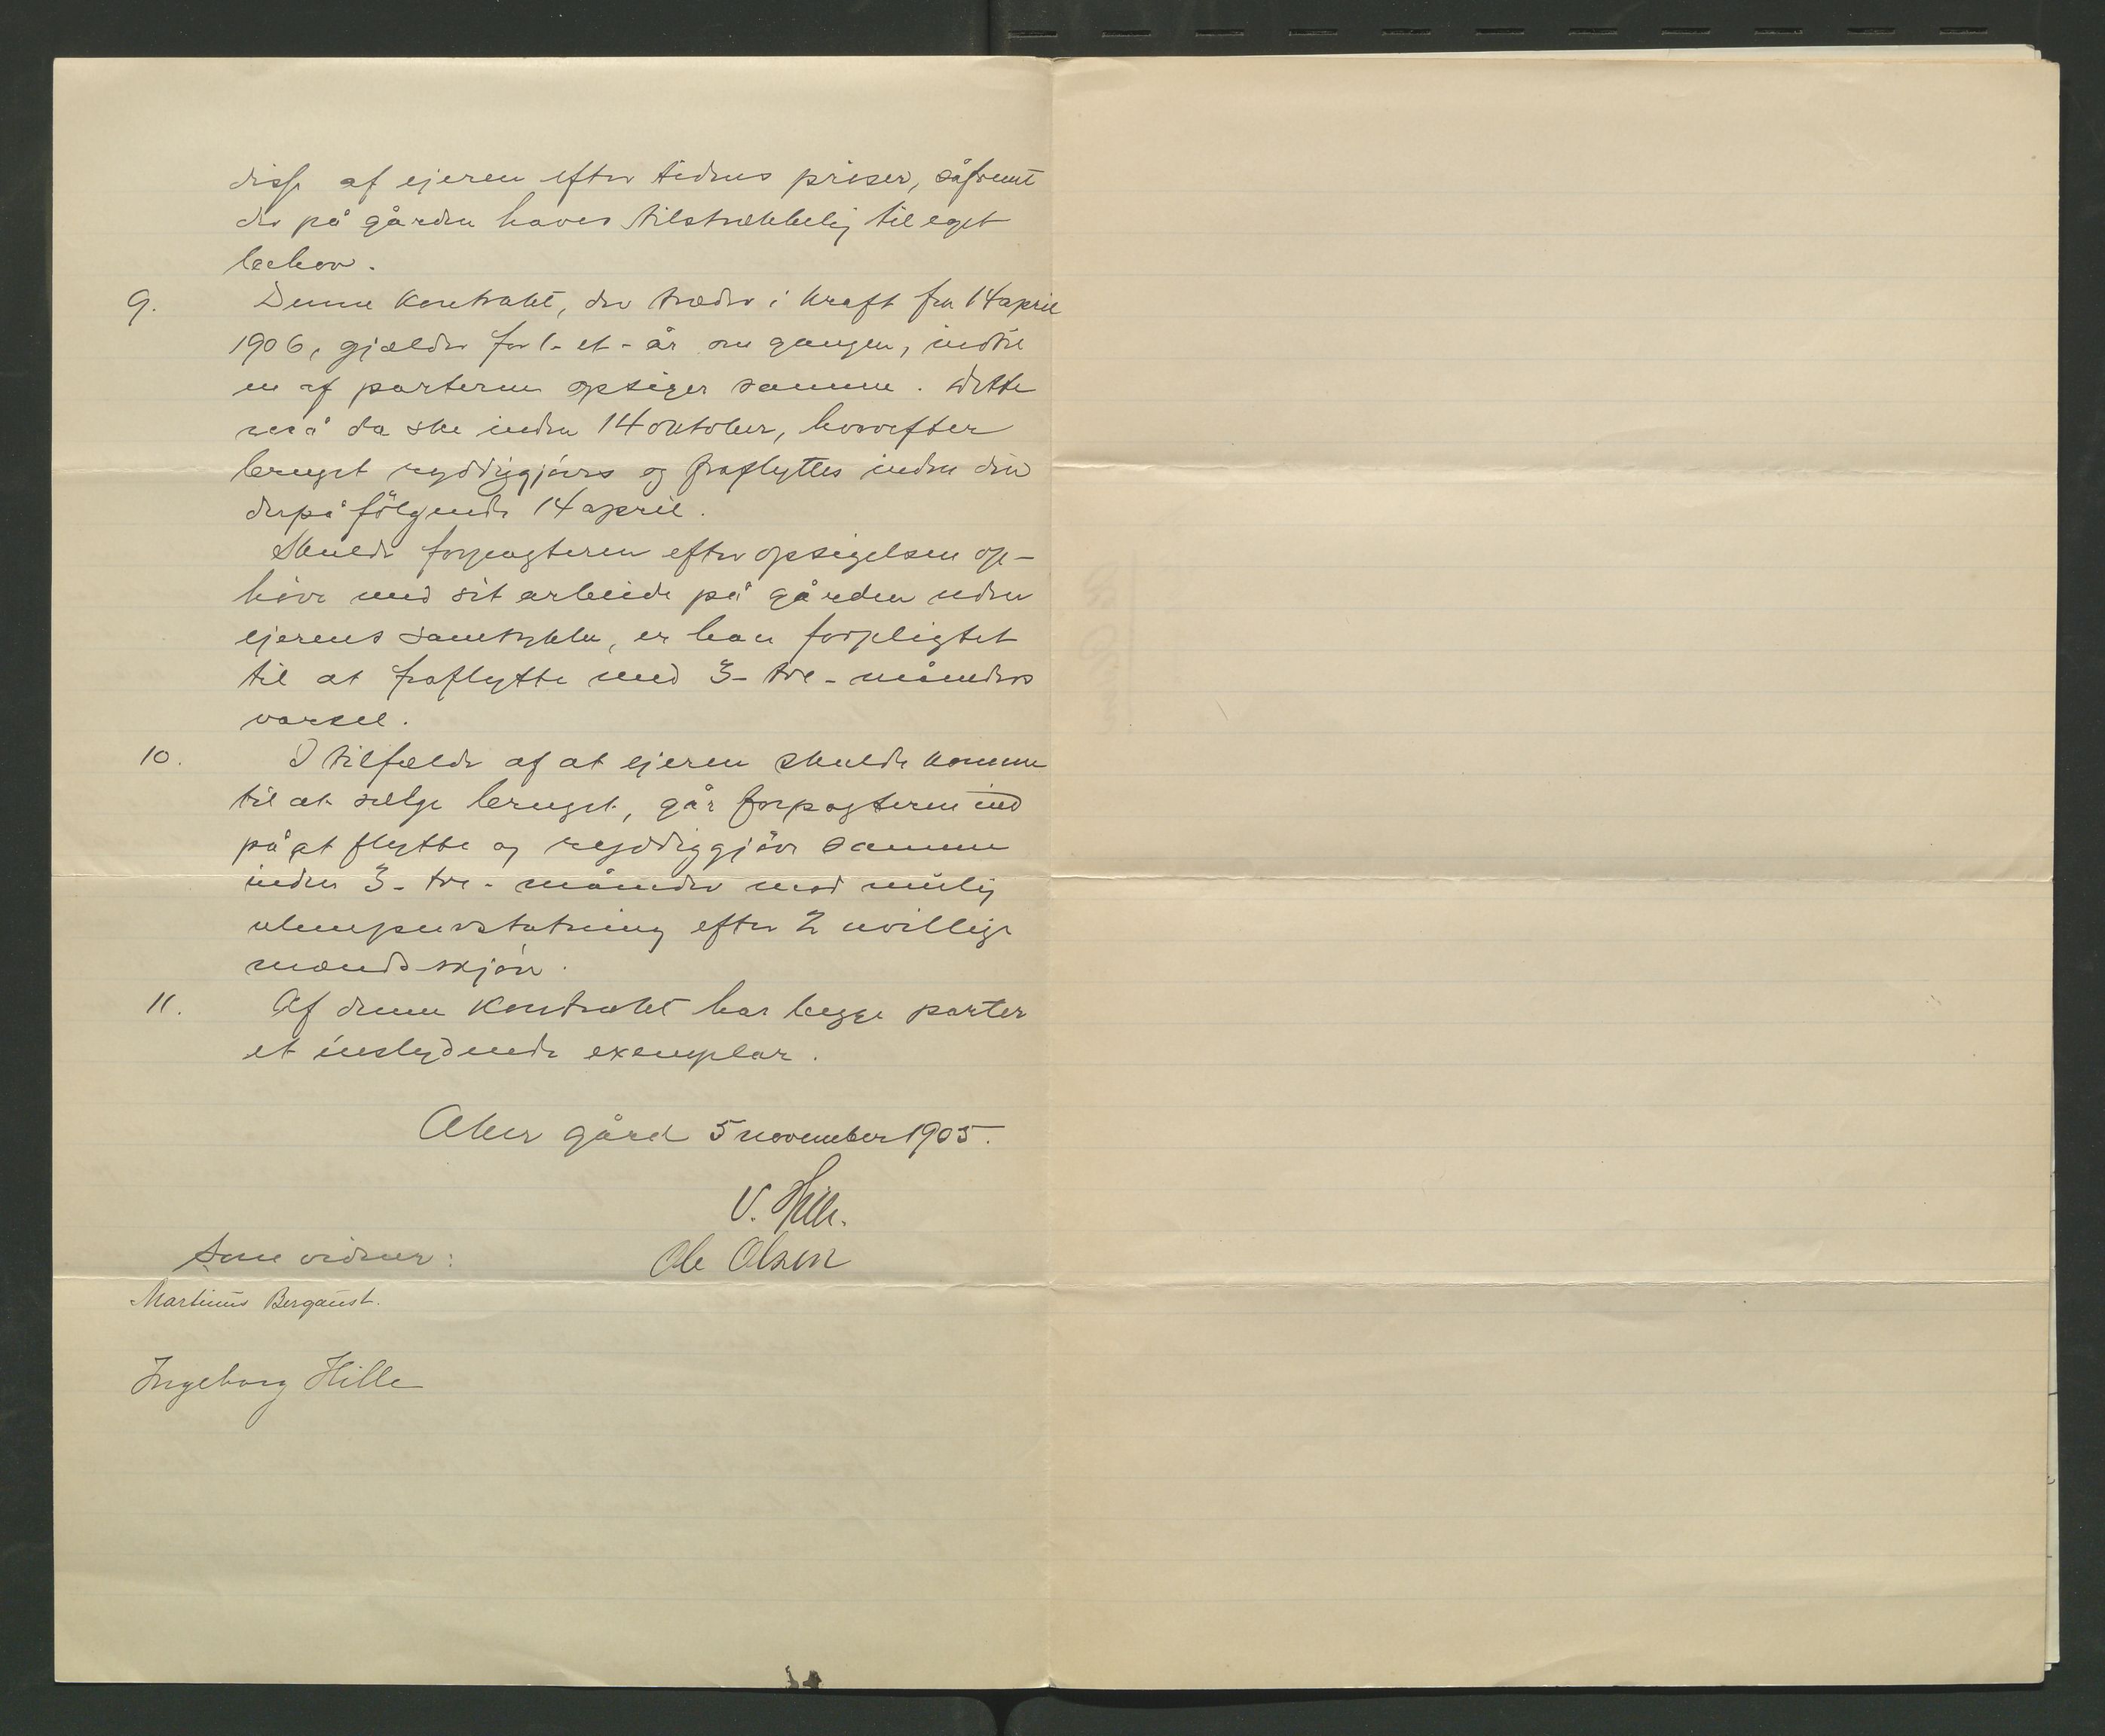 disse af ejeren efter tidens priser, såfremt
der på gården haves tilstrækkelig til eget
behov.
9. Denne kontrakt, der træder i kraft fra 14 april
1906, gjælder for 1- et- år om gangen, indtil
en af parterne opsiger samme. Dette
må da ske inden 14 oktober, hvorefter
bruget ryddiggjøres og fraflyttes inden den
derpå følgende 14 april.
Skulde forpagteren efter opsigelsen op-
høre med sit arbeide på gården uden
ejerens samtykke, er han forpligtet
til at fraflytte med 3- tre- måneders
varsel.
10. I tilfælde af at ejeren skulde komme
til at sælge bruget, går forpagteren ind
på at flytte og ryddiggjøre samme
inden 3- tre- måneder mod mulig
ulempeerstatning efter 2 uvillige
mænds skjøn.
11. Af denne kontrakt har begge parter
et enslydende exemplar.
Aker gård 5 november 1905.
V. Hille.
Ole Olsen
Som vidner:
Martinus Bergaust.
Ingeborg Hille